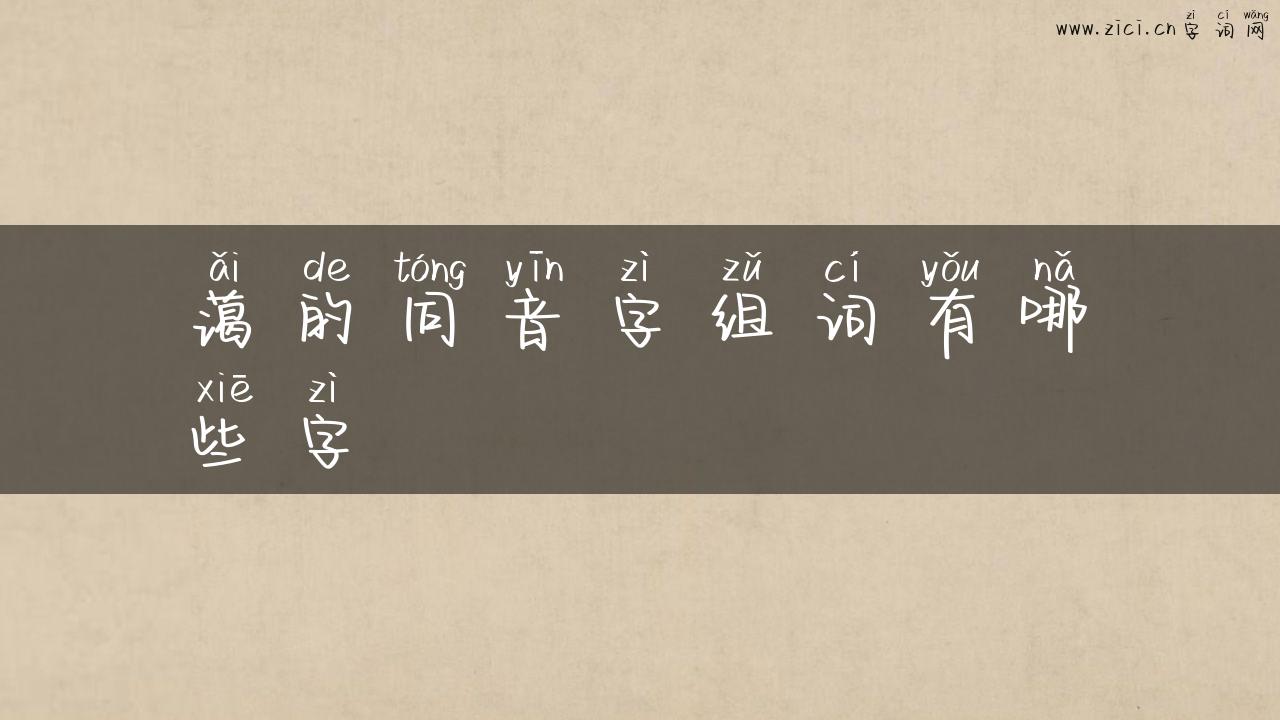 www.zici.cn zì cí wǎng
字词网
ǎi de tóng yīn zì zǔ cí yǒu nǎ
蔼的同音字组词有哪
xiē zì
些字